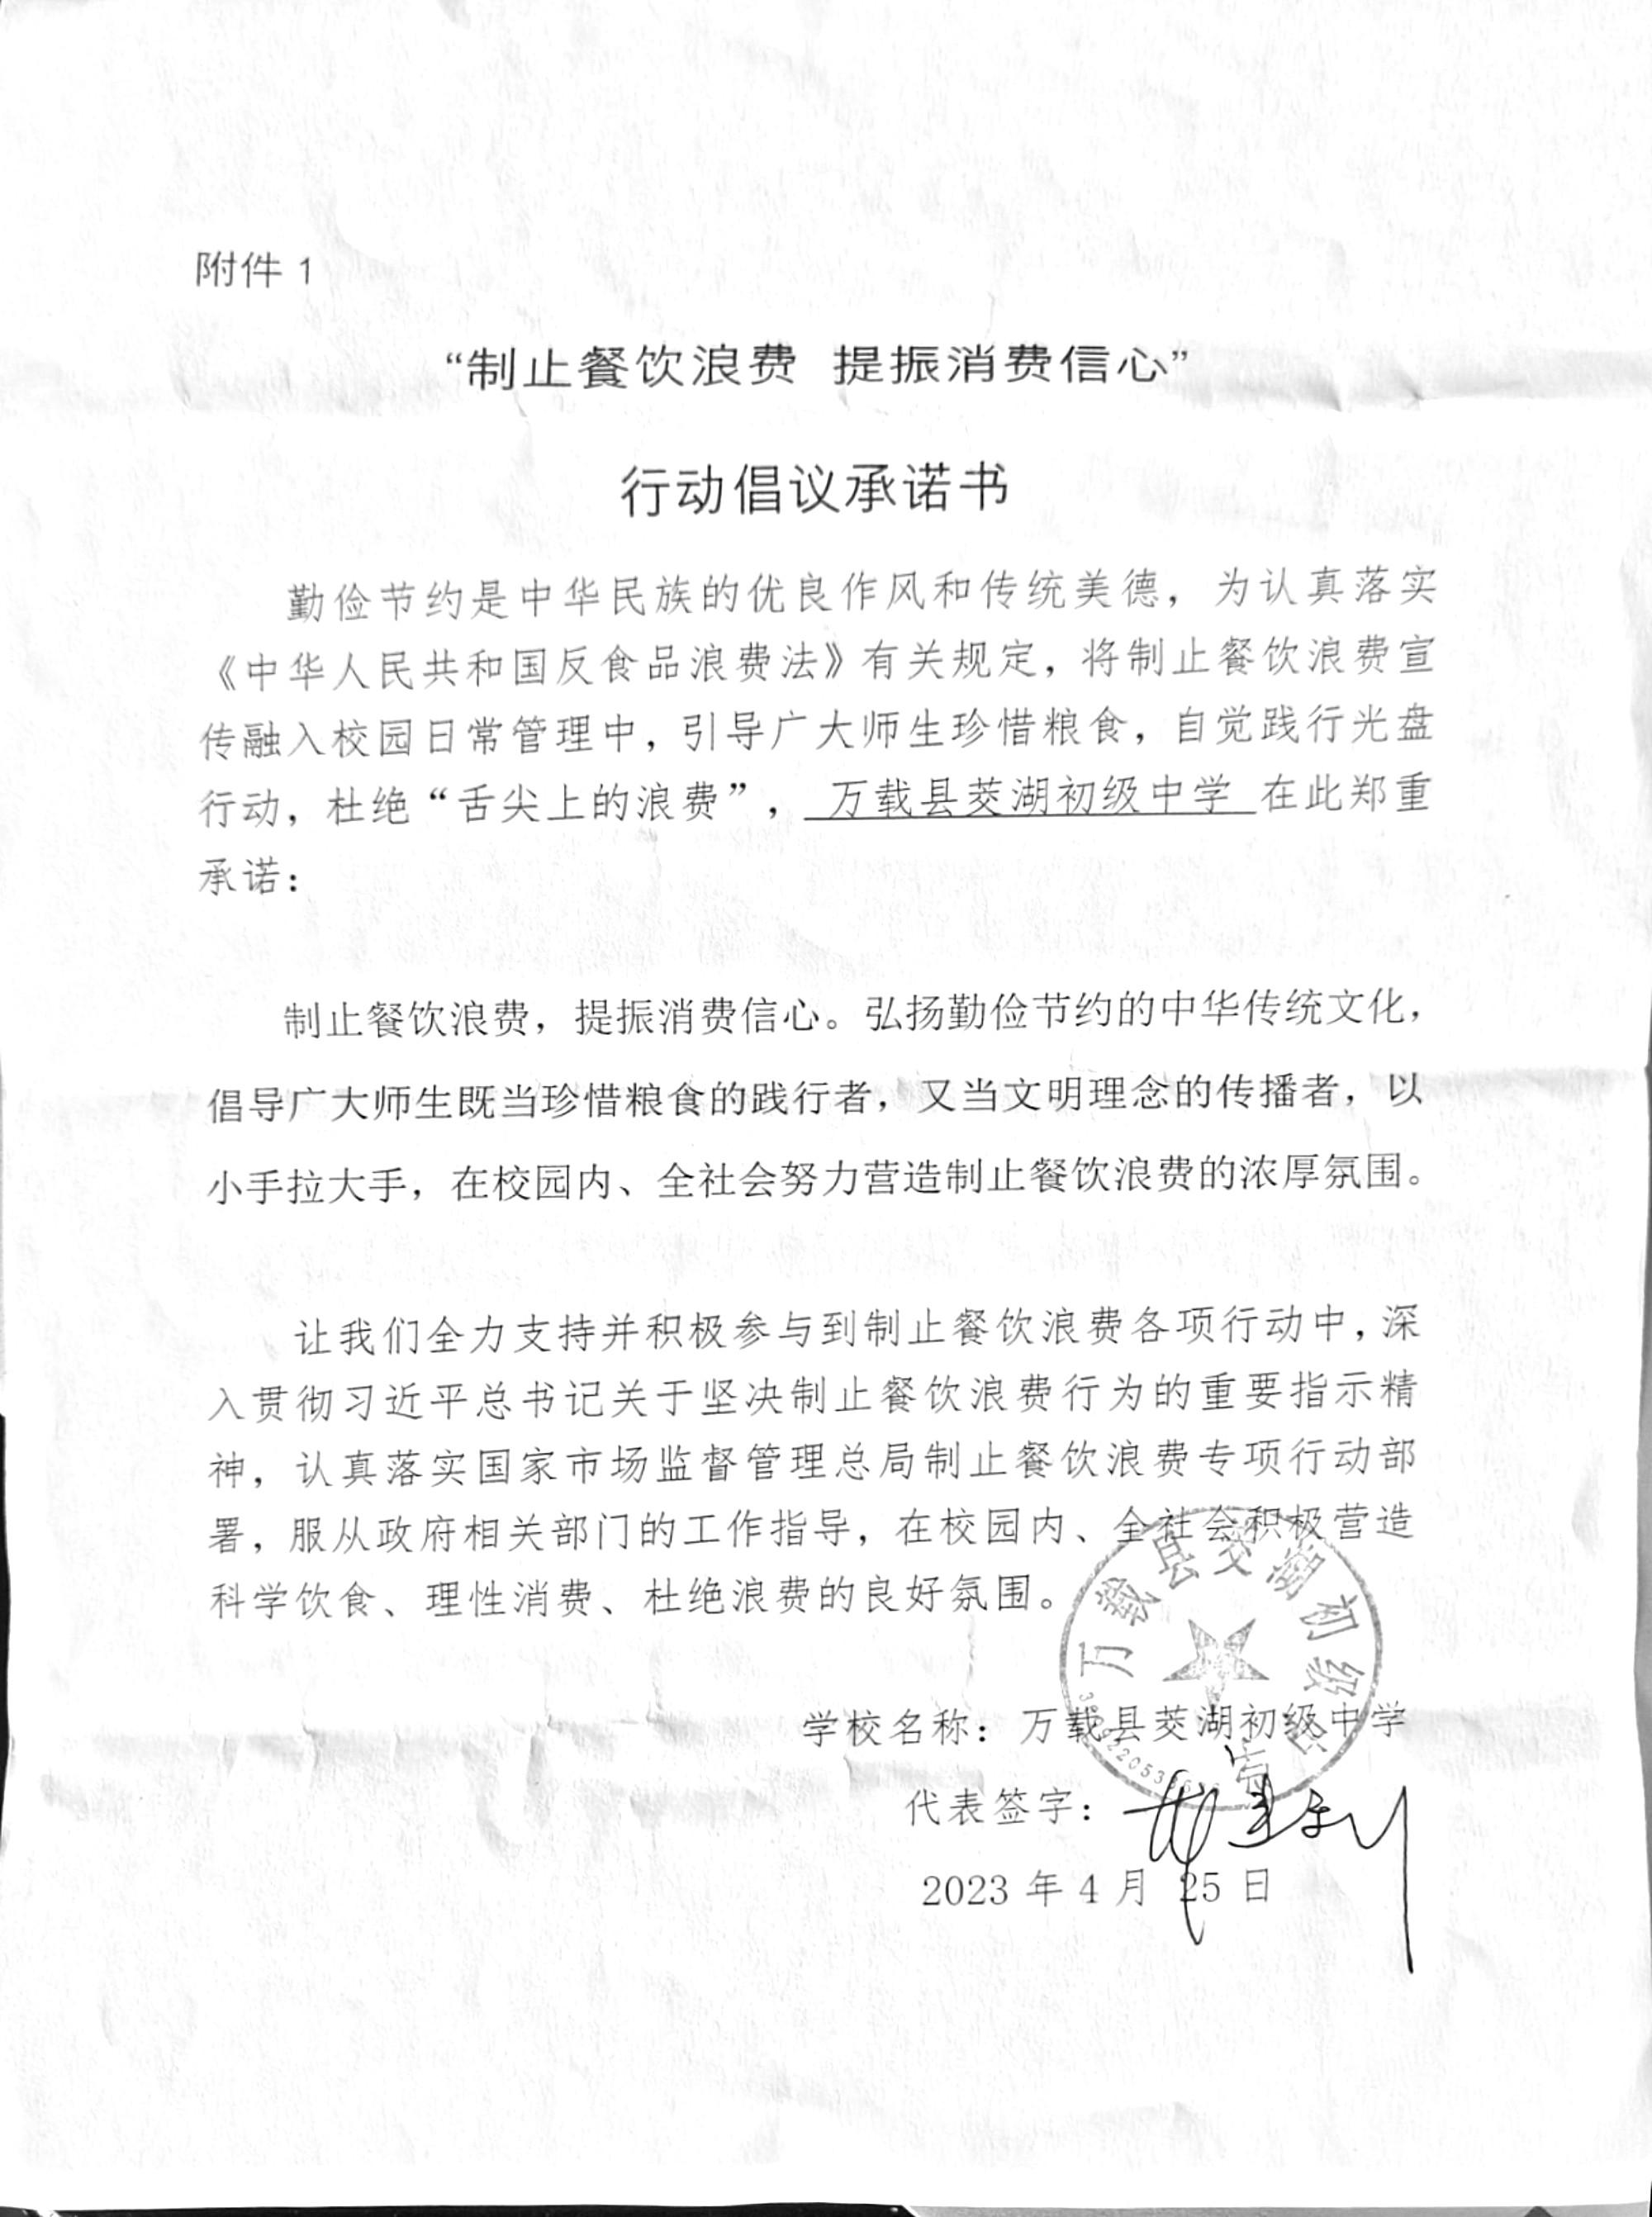 附件 1
“制止餐饮浪费 提振消费信心”
行动倡议承诺书
勤俭节约是中华民族的优良作风和传统美德，为认真落实
《中华人民共和国反食品浪费法》有关规定，将制止餐饮浪费宣
传融入校园日常管理中，引导广大师生珍惜粮食，自觉践行光盘
行动，杜绝“舌尖上的浪费”，万载县茭湖初级中学 在此郑重
承诺：
制止餐饮浪费，提振消费信心。弘扬勤俭节约的中华传统文化，
倡导广大师生既当珍惜粮食的践行者，又当文明理念的传播者，以
小手拉大手，在校园内、全社会努力营造制止餐饮浪费的浓厚氛围。
让我们全力支持并积极参与到制止餐饮浪费各项行动中，深
入贯彻习近平总书记关于坚决制止餐饮浪费行为的重要指示精
神，认真落实国家市场监督管理总局制止餐饮浪费专项行动部
署，服从政府相关部门的工作指导，在校园内、全社会积极营造
科学饮食、理性消费、杜绝浪费的良好氛围。
万载县茭湖初级中学
学校名称：万载县茭湖初级中学
代表签字：
2023 年 4 月 25 日